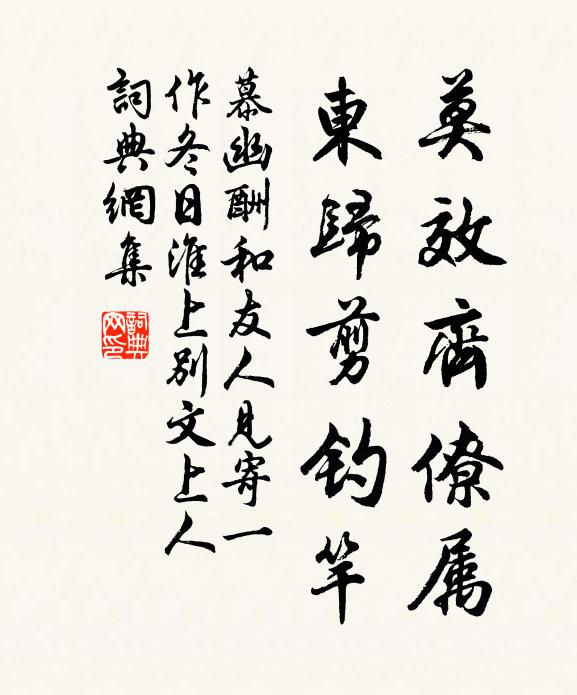 莫效齊僚属
東歸剪钓竿
慕幽酬和友人見寄一
作冬日淮上别文上人
詞典網集
詞典
网印